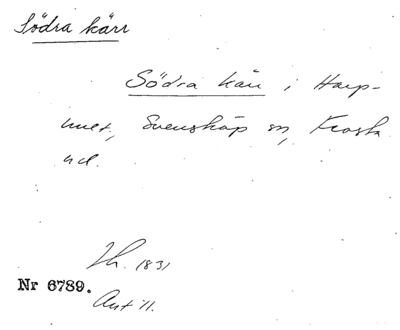 Södra kärr
Södra kärr i Harp-
mret, Svenskåp sn, Frosta
hd.
Th. 1831
Nr 6789.
Ant 11.